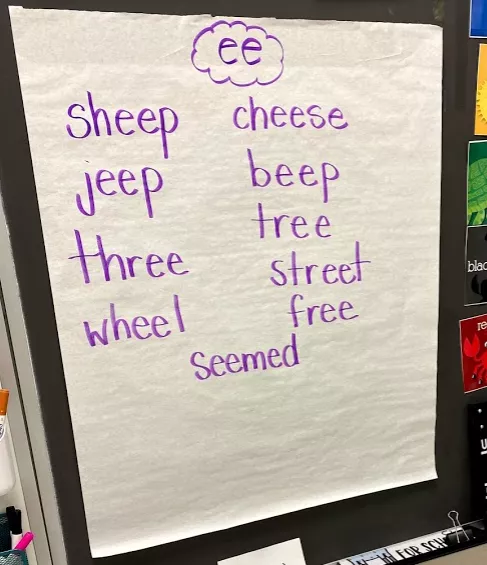 ee
sheep cheese
jeep beep
tree
three street
wheel free
seemed
FOR SCH
blac
re